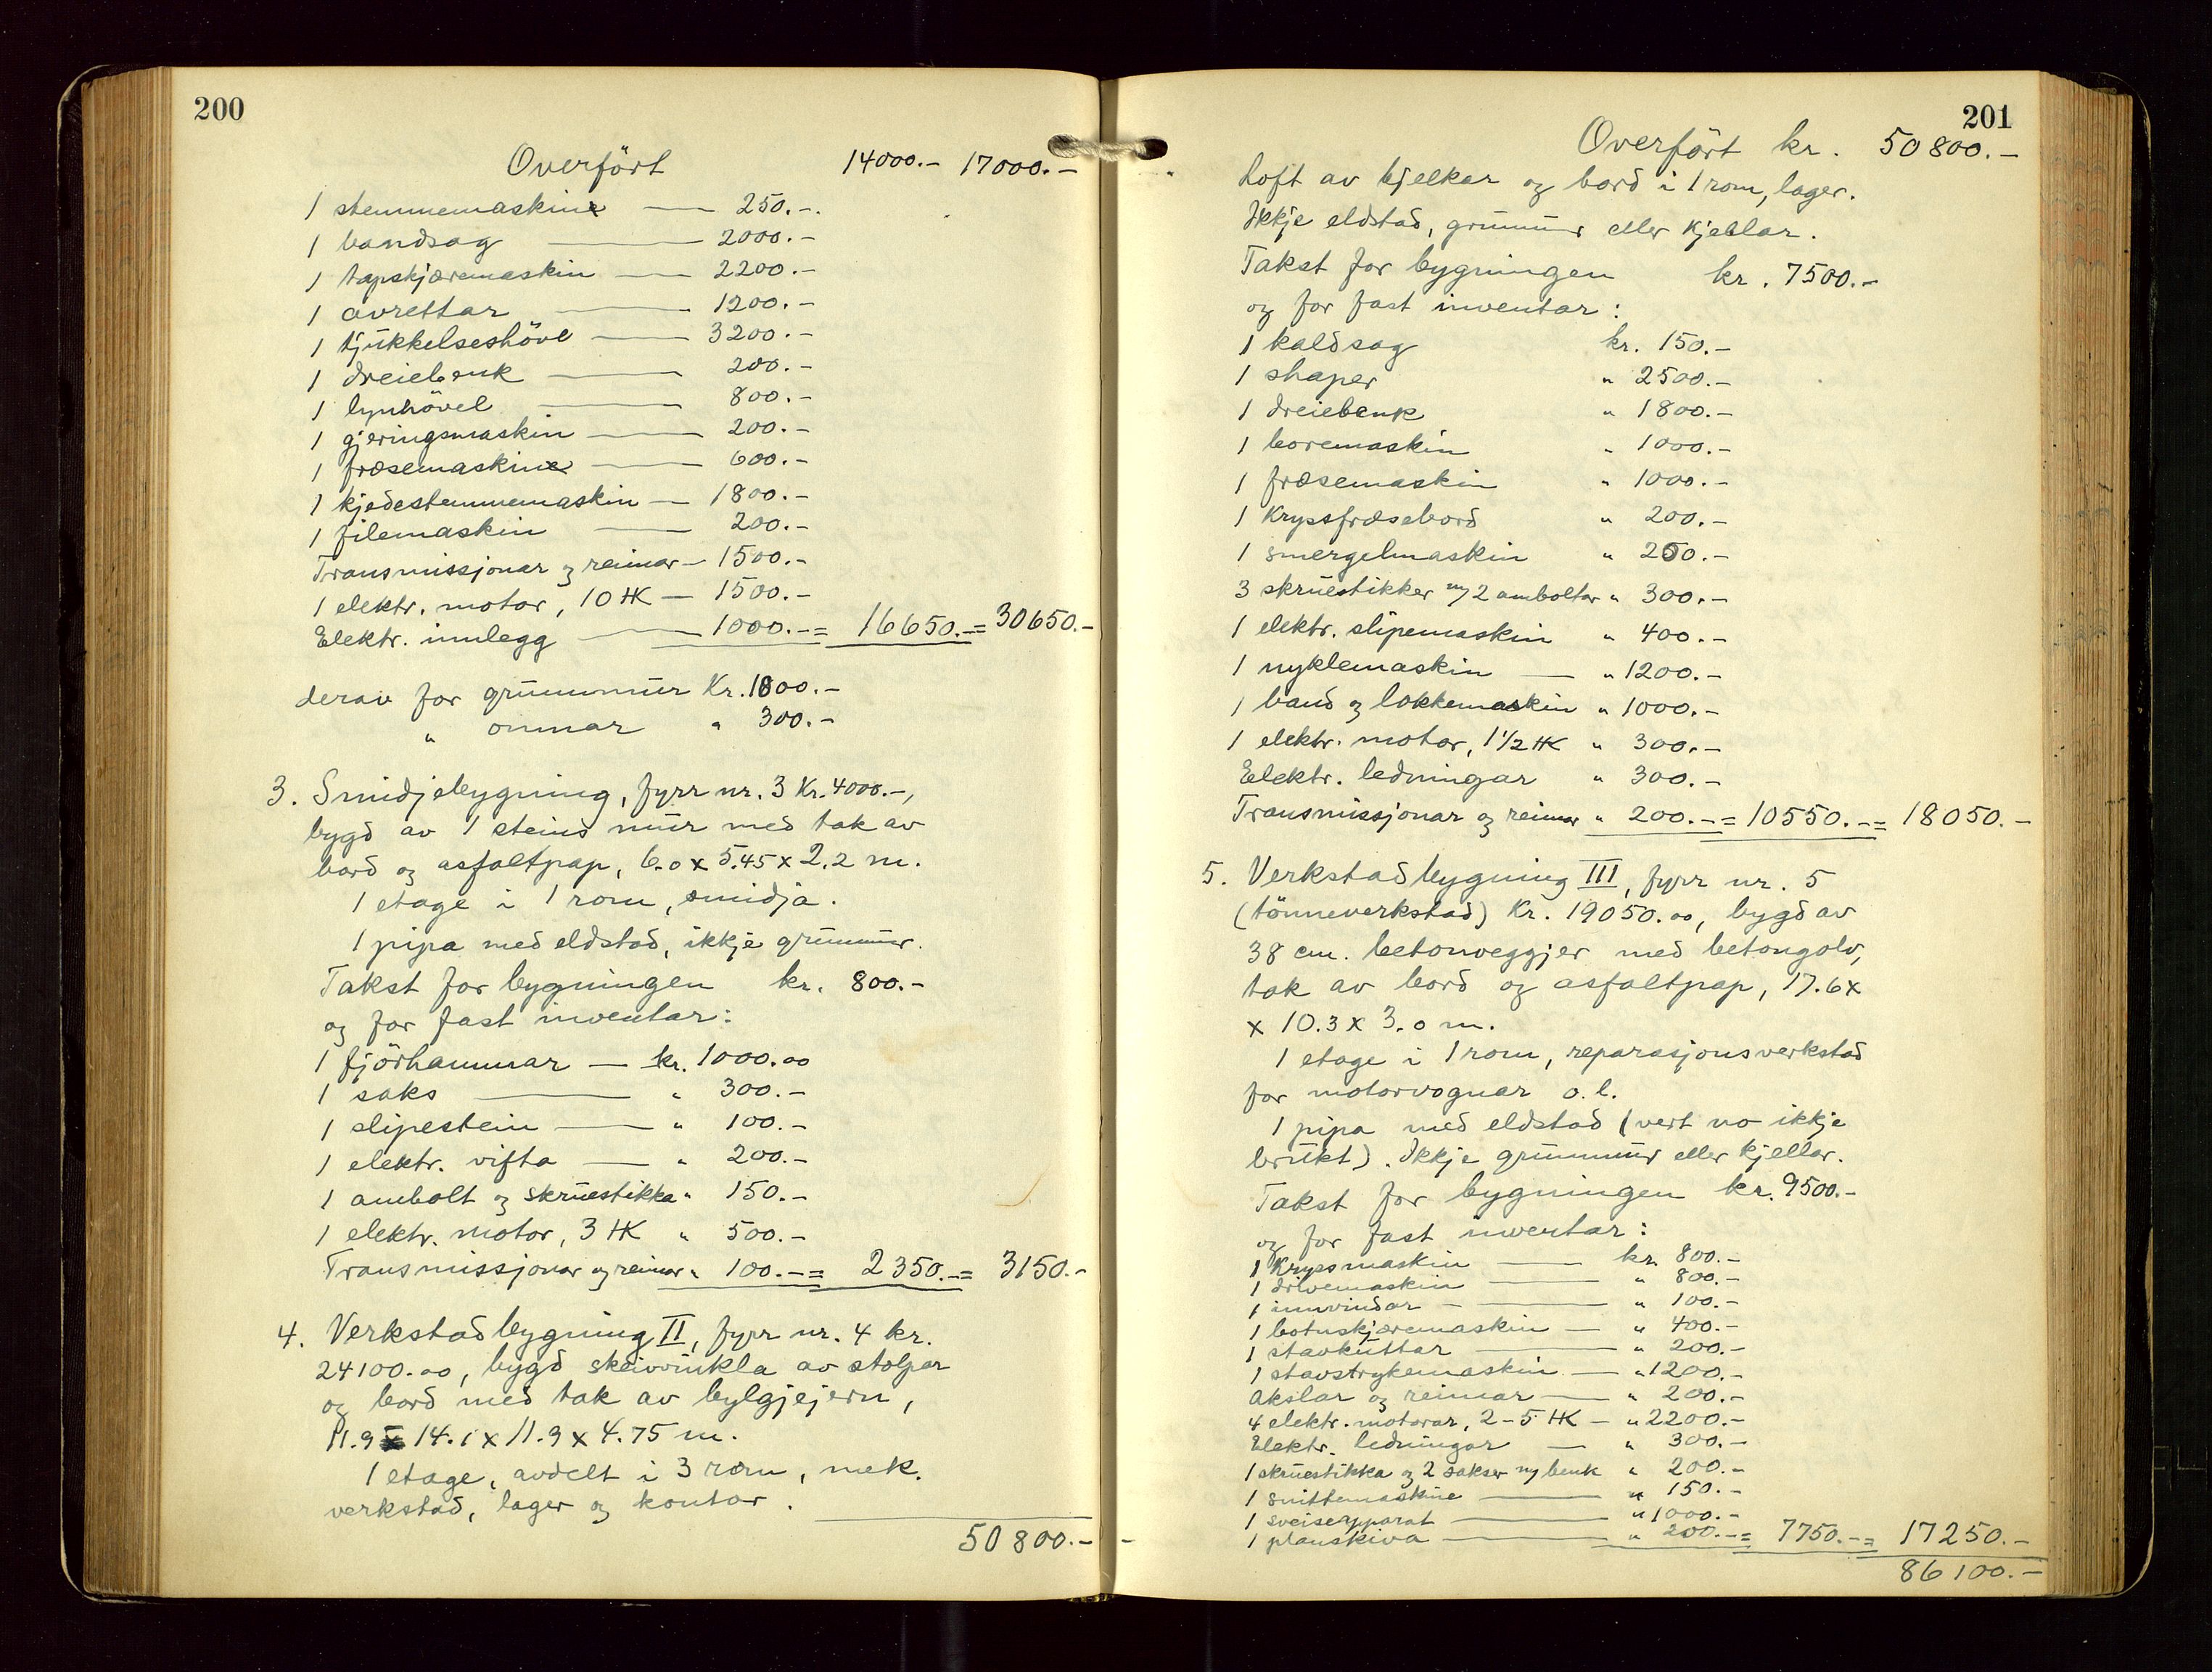 200
Overført 14000.- 17000.-
1 stemmemaskin — 250.-
1 bandsag — 2000.-
1 tapskjæremaskin — 2200.-
1 avrettar — 1200.-
1 tjukkelseshövl — 3200.-
1 dreiebenk — 200.-
1 lynhövel — 800.-
1 gjeringsmaskin — 200.-
1 fræsemaskin — 600.-
1 kjedestemmemaskin — 1800.-
1 filemaskin — 200.-
Transmissjonar og reimar — 1500.-
1 elektr. motor, 10 HK — 1500.-
Elektr. innlegg — 1000.- = 16650.- = 30650.-
derav for grunnmur Kr. 1800.-
" omnar " 300.-
3. Smidjebygning, fyrr nr. 3 Kr. 4000.-,
bygd av 1 steins mur med tak av
bord og asfaltpap, 6.0 x 5.45 x 2.2 m.
1 etage i 1 rom, smidja.
1 pipa med eldstad, ikkje grunnmur.
Takst for bygningen kr. 800.-
og for fast inventar:
1 fjörhammar — kr. 1000.00
1 saks — " 300.-
1 slipestein — " 100.-
1 elektr. vifta — " 200.-
1 ambolt og skruestikka " 150.-
1 elektr. motor, 3 HK " 500.-
Transmissjonar og reimar " 100.- = 2350.- = 3150.-
4. Verkstadbygning II, fyrr nr. 4 kr.
24100.00, bygd skeivvinkla av stolpar
og bord med tak av bylgjejern,
11.9 x 14.1 x 11.9 x 4.75 m.
1 etage, avdelt i 3 rom, mek.
verkstad, lager og kontor.
50800.-
201
Overfört kr. 50800.-
Loft av bjelkar og bord i 1 rom, lager.
Ikkje eldstad, grunmur eller kjellar.
Takst for bygningen kr. 7500.-
og for fast inventar:
1 kaldsag kr. 150.-
1 shaper " 2500.-
1 dreiebenk " 1800.-
1 boremaskin " 1000.-
1 fræsemaskin " 1000.-
1 Kryssfræsebord " 200.-
1 smergelmaskin " 200.-
3 skruestikker m/ 2 amboltar " 300.-
1 elektr. slipemaskin " 400.-
1 nyklemaskin — " 1200.-
1 band og lokkemaskin " 1000.-
1 elektr. motor, 1 1/2 HK " 300.-
Elektr. ledningar " 300.-
Transmissjonar og reimar " 200.- = 10550.- = 18050.-
5. Verkstadbygning III, fyrr nr. 5
(tönneverkstad) Kr. 19050.00, bygd av
38 cm. betonveggjer med betongolv,
tak av bord og asfaltpap, 17.6 x
x 10.3 x 3.0 m.
1 etage i 1 rom, reparasjonsverkstad
for motorvognar o.l.
1 pipa med eldstad (vert no ikkje
brukt). Ikkje grunnmur eller kjellar.
Takst for bygningen kr. 9500.-
og for fast inventar:
1 Kryssmaskin — kr. 800.-
1 drivemaskin — " 800.-
1 innvindar — " 100.-
1 botnskjæremaskin — " 400.-
1 stavkuttar — " 200.-
1 stavstrykemaskin — " 1200.-
Akslar og reimar — " 200.-
4 elektr. motorar, 2-5 HK — " 2200.-
Elektr. ledningar — " 300.-
1 skruestikka og 2 sakser m/ benk " 200.-
1 snittemaskine — " 150.-
1 sveiseapparat — " 1000.-
1 planskiva — " 200.- = 7750.- = 17250.-
86100.-